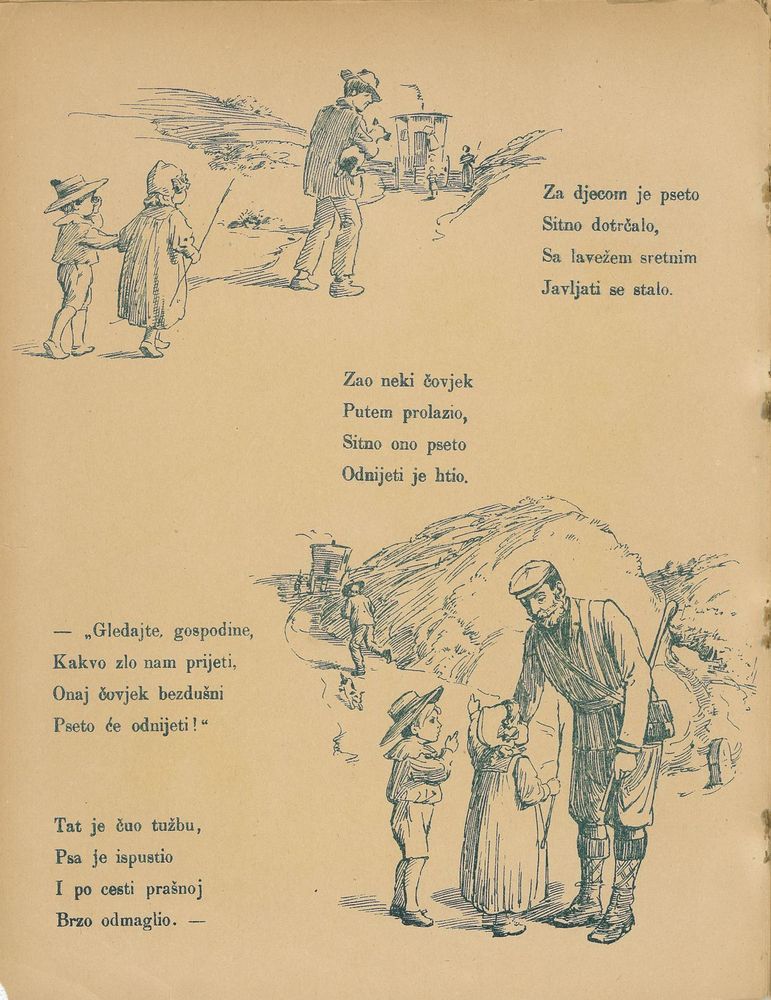 Za djecom je pseto
Sitno dotrčalo,
Sa lavežem sretnim
Javljati se stalo.
Zao neki čovjek
Putem prolazio,
Sitno ono pseto
Odnijeti je htio.
— „Gledajte, gospodine,
Kakvo zlo nam prijeti,
Onaj čovjek bezdušni
Pseto će odnijeti!“
Tat je čuo tužbu,
Psa je ispustio
I po cesti prašnoj
Brzo odmaglio. —